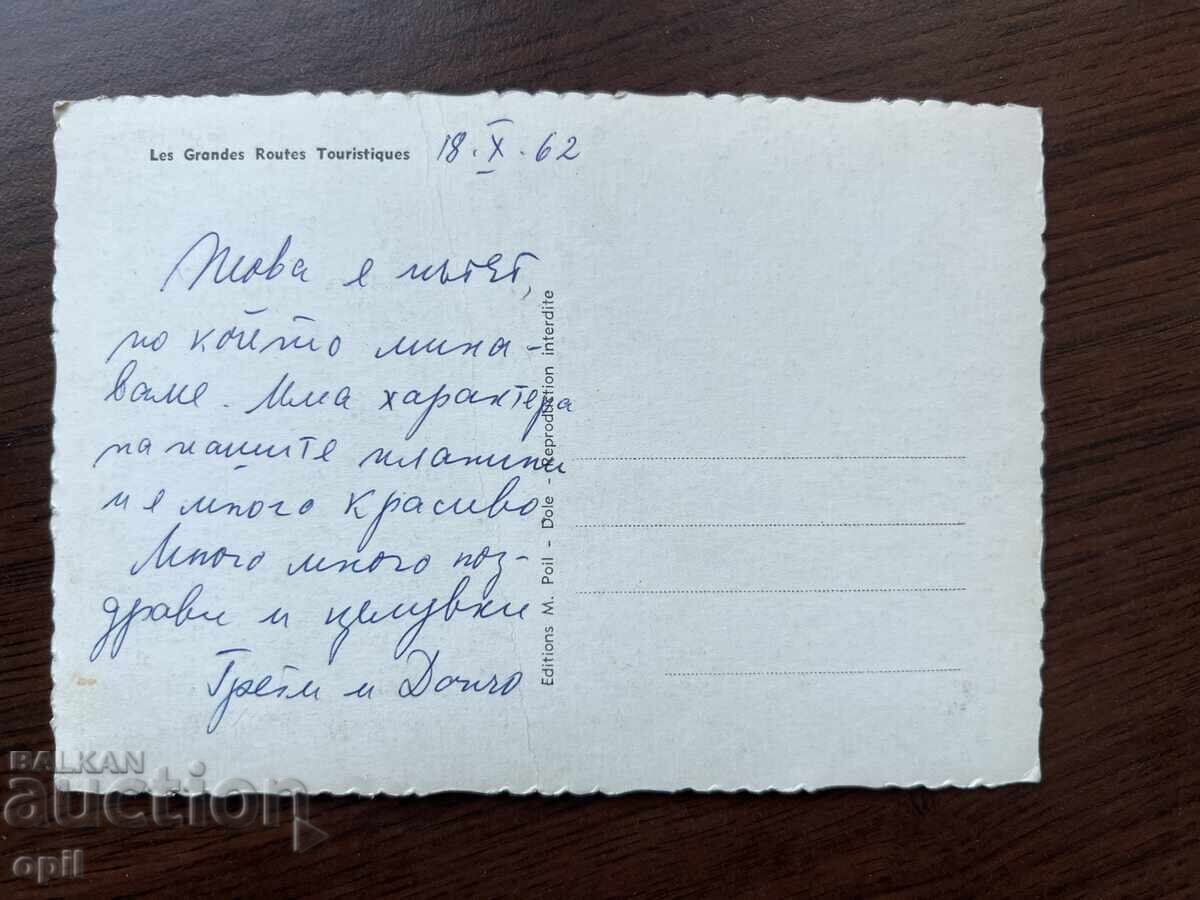 Les Grandes Routes Touristiques 18.X.62
Това е пътят,
по който мина-
ваме. Има характера
на нашите планини
и е много красиво
Много много поз-
драви и целувки
Грети и Дончо
Editions M. Poil - Dole - Reproduction interdite
BALKAN
auction
opil